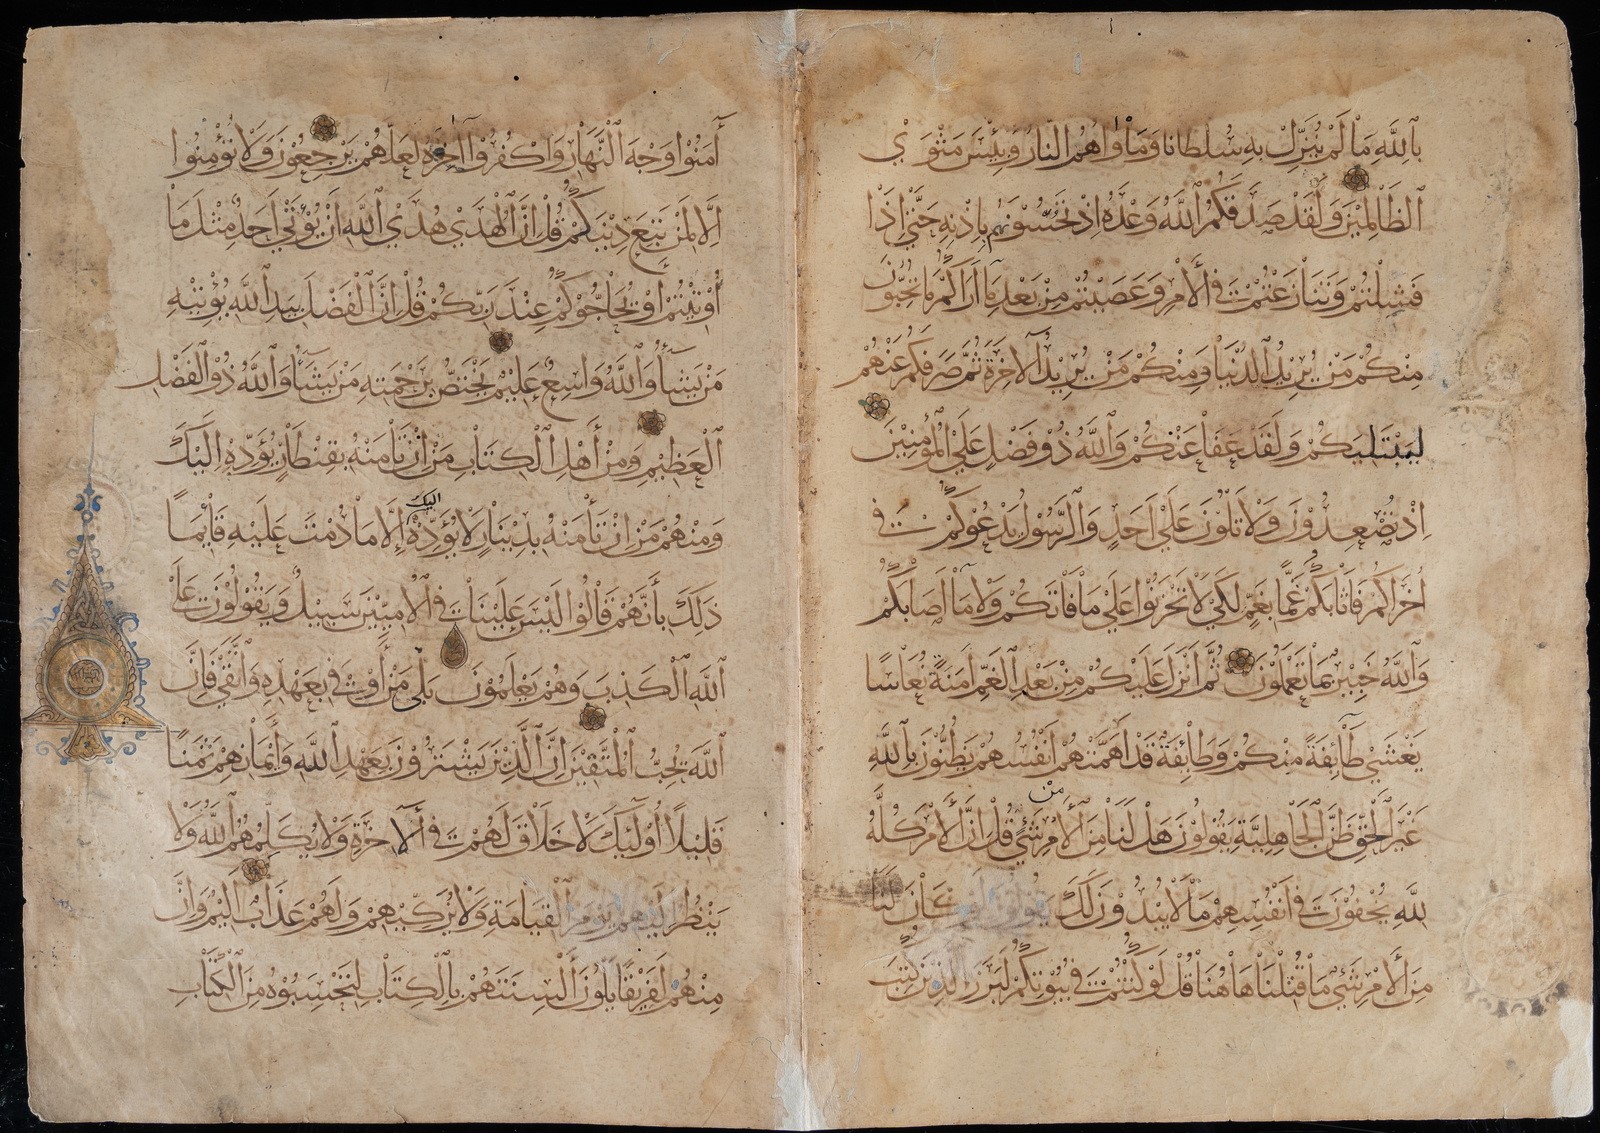 بِٱللَّهِ مَا لَمْ يُنَزِّلْ بِهِ سُلْطَانًا وَمَأْوَاهُمُ النَّارُ وَبِئْسَ مَثْوَى
الظَّالِمِينَ وَلَقَدْ صَدَقَكُمُ ٱللَّهُ وَعْدَهُ إِذْ تَحُسُّونَهُم بِإِذْنِهِ حَتَّى إِذَا
فَشِلْتُمْ وَتَنَازَعْتُمْ فِي ٱلْأَمْرِ وَعَصَيْتُمْ مِنْ بَعْدِ مَا أَرَاكُمْ مَا تُحِبُّونَ
مِنْكُمْ مَنْ يُرِيدُ ٱلدُّنْيَا وَمِنْكُمْ مَنْ يُرِيدُ ٱلْآخِرَةَ ثُمَّ صَرَفَكُمْ عَنْهُمْ
لِيَبْتَلِيَكُمْ وَلَقَدْ عَفَا عَنْكُمْ وَٱللَّهُ ذُو فَضْلٍ عَلَى ٱلْمُؤْمِنِينَ
إِذْ تُصْعِدُونَ وَلَا تَلْوُونَ عَلَى أَحَدٍ وَٱلرَّسُولُ يَدْعُوكُمْ فِي
أُخْرَاكُمْ فَأَثَابَكُمْ غَمًّا بِغَمٍّ لِكَيْ لَا تَحْزَنُوا عَلَى مَا فَاتَكُمْ وَلَا مَا أَصَابَكُمْ
وَٱللَّهُ خَبِيرٌ بِمَا تَعْمَلُونَ ثُمَّ أَنْزَلَ عَلَيْكُمْ مِنْ بَعْدِ ٱلْغَمِّ أَمَنَةً نُعَاسًا
يَغْشَى طَائِفَةً مِنْكُمْ وَطَائِفَةٌ قَدْ أَهَمَّتْهُمْ أَنْفُسُهُمْ يَظُنُّونَ بِٱللَّهِ
غَيْرَ ٱلْحَقِّ ظَنَّ ٱلْجَاهِلِيَّةِ يَقُولُونَ هَلْ لَنَا مِنَ ٱلْأَمْرِ مِنْ شَيْءٍ قُلْ إِنَّ ٱلْأَمْرَ كُلَّهُ
لِلَّهِ يُخْفُونَ فِي أَنْفُسِهِمْ مَا لَا يُبْدُونَ لَكَ يَقُولُونَ لَوْ كَانَ لَنَا
مِنَ ٱلْأَمْرِ شَيْءٌ مَا قُتِلْنَا هَاهُنَا قُلْ لَوْ كُنْتُمْ فِي بُيُوتِكُمْ لَبَرَزَ ٱلَّذِينَ كُتِبَ
آمَنُوا وَجْهَ ٱلنَّهَارِ وَٱكْفُرُوا آخِرَهُ لَعَلَّهُمْ يَرْجِعُونَ وَلَا تُؤْمِنُوا
إِلَّا لِمَنْ تَبِعَ دِينَكُمْ قُلْ إِنَّ ٱلْهُدَى هُدَى ٱللَّهِ أَنْ يُؤْتَى أَحَدٌ مِثْلَ مَا
أُوتِيتُمْ أَوْ يُحَاجُّوكُمْ عِنْدَ رَبِّكُمْ قُلْ إِنَّ ٱلْفَضْلَ بِيَدِ ٱللَّهِ يُؤْتِيهِ
مَنْ يَشَاءُ وَٱللَّهُ وَاسِعٌ عَلِيمٌ يَخْتَصُّ بِرَحْمَتِهِ مَنْ يَشَاءُ وَٱللَّهُ ذُو ٱلْفَضْلِ
ٱلْعَظِيمِ وَمِنْ أَهْلِ ٱلْكِتَابِ مَنْ إِنْ تَأْمَنْهُ بِقِنْطَارٍ يُؤَدِّهِ إِلَيْكَ
وَمِنْهُمْ مَنْ إِنْ تَأْمَنْهُ بِدِينَارٍ لَا يُؤَدِّهِ اليك إِلَّا مَا دُمْتَ عَلَيْهِ قَائِمًا
ذَلِكَ بِأَنَّهُمْ قَالُوا لَيْسَ عَلَيْنَا فِي ٱلْأُمِّيِّينَ سَبِيلٌ وَيَقُولُونَ عَلَى
ٱللَّهِ ٱلْكَذِبَ وَهُمْ يَعْلَمُونَ بَلَى مَنْ أَوْفَى بِعَهْدِهِ وَٱتَّقَى فَإِنَّ
ٱللَّهَ يُحِبُّ ٱلْمُتَّقِينَ إِنَّ ٱلَّذِينَ يَشْتَرُونَ بِعَهْدِ ٱللَّهِ وَأَيْمَانِهِمْ ثَمَنًا
قَلِيلًا أُولَئِكَ لَا خَلَاقَ لَهُمْ فِي ٱلْآخِرَةِ وَلَا يُكَلِّمُهُمُ ٱللَّهُ وَلَا
يَنْظُرُ إِلَيْهِمْ يَوْمَ ٱلْقِيَامَةِ وَلَا يُزَكِّيهِمْ وَلَهُمْ عَذَابٌ أَلِيمٌ وَإِنَّ
مِنْهُمْ لَفَرِيقًا يَلْوُونَ أَلْسِنَتَهُمْ بِٱلْكِتَابِ لِتَحْسَبُوهُ مِنَ ٱلْكِتَابِ